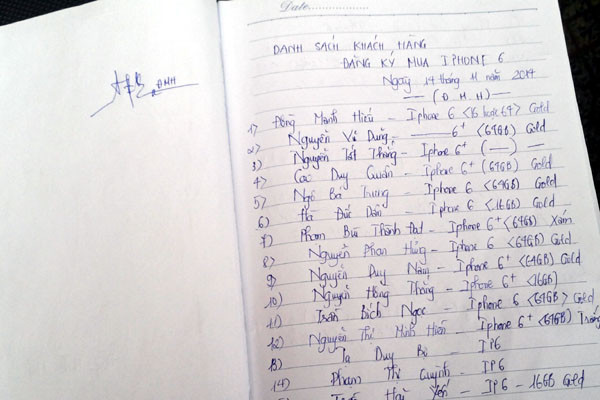 ĐNH
Date
DANH SÁCH KHÁCH HÀNG
ĐĂNG KÝ MUA IPHONE 6
Ngày 14 tháng 11 năm 2014
— (Đ M H) —
1) Đồng Minh Hiếu – Iphone 6 <16 hoặc 64> Gold
2) Nguyễn Vũ Dũng – —— 6+ <64GB> Gold
3) Nguyễn Tất Thắng – Iphone 6+ (—) —
4) Cao Duy Quân – Iphone 6+ (64GB) Gold
5) Ngô Bá Trung – Iphone 6 <64GB> Gold
6) Hà Đức Dân – Iphone 6 <16GB> Gold
7) Phạm Bùi Thành Đạt – Iphone 6+ <64GB> Xám
8) Nguyễn Phan Hùng – Iphone 6 <64GB> Gold
9) Nguyễn Duy Năm – Iphone 6+ <64GB> Gold
10) Nguyễn Hồng Thăng – Iphone 6+ <16GB>
11) Trần Bích Ngọc – Iphone 6 <64GB> Gold
12) Nguyễn Thị Minh Hiền – Iphone 6+ <64GB> Trắng
13) Tạ Duy Bộ – IP6
14) Phạm Thị Quỳnh – IP6
Hải Yến – IP6 – 16GB Gold